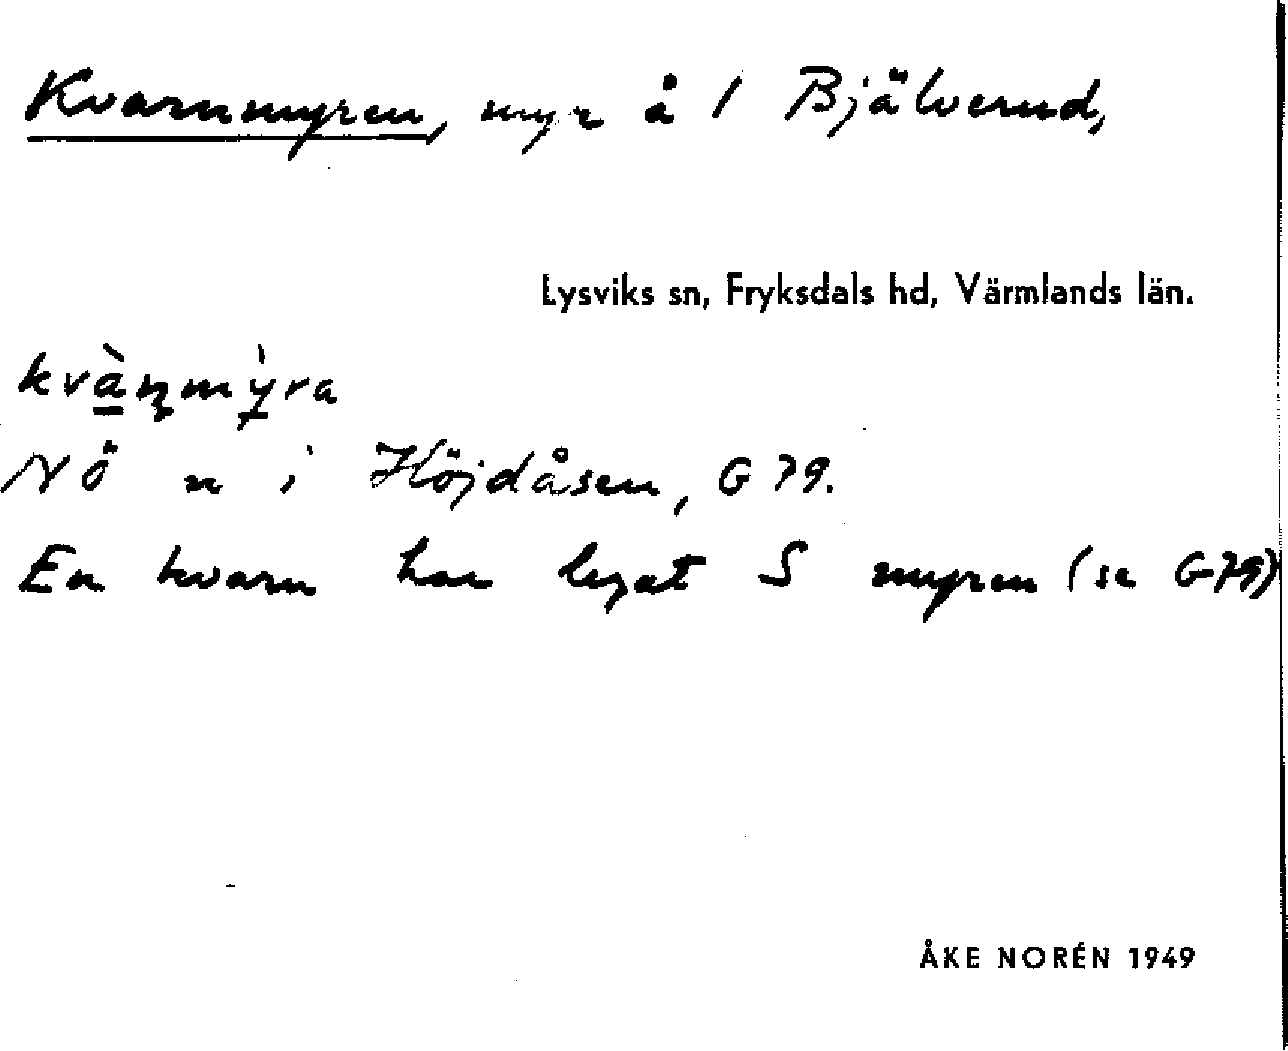 Kvarnmyren, myr å 1 Bjälverud,
Lysviks sn, Fryksdals hd, Värmlands län.
kvàn̠mỳra
NÖ n i Höjdåsen, G 79.
En kvarn har legat S myren (se G79)
ÅKE NORÉN 1949